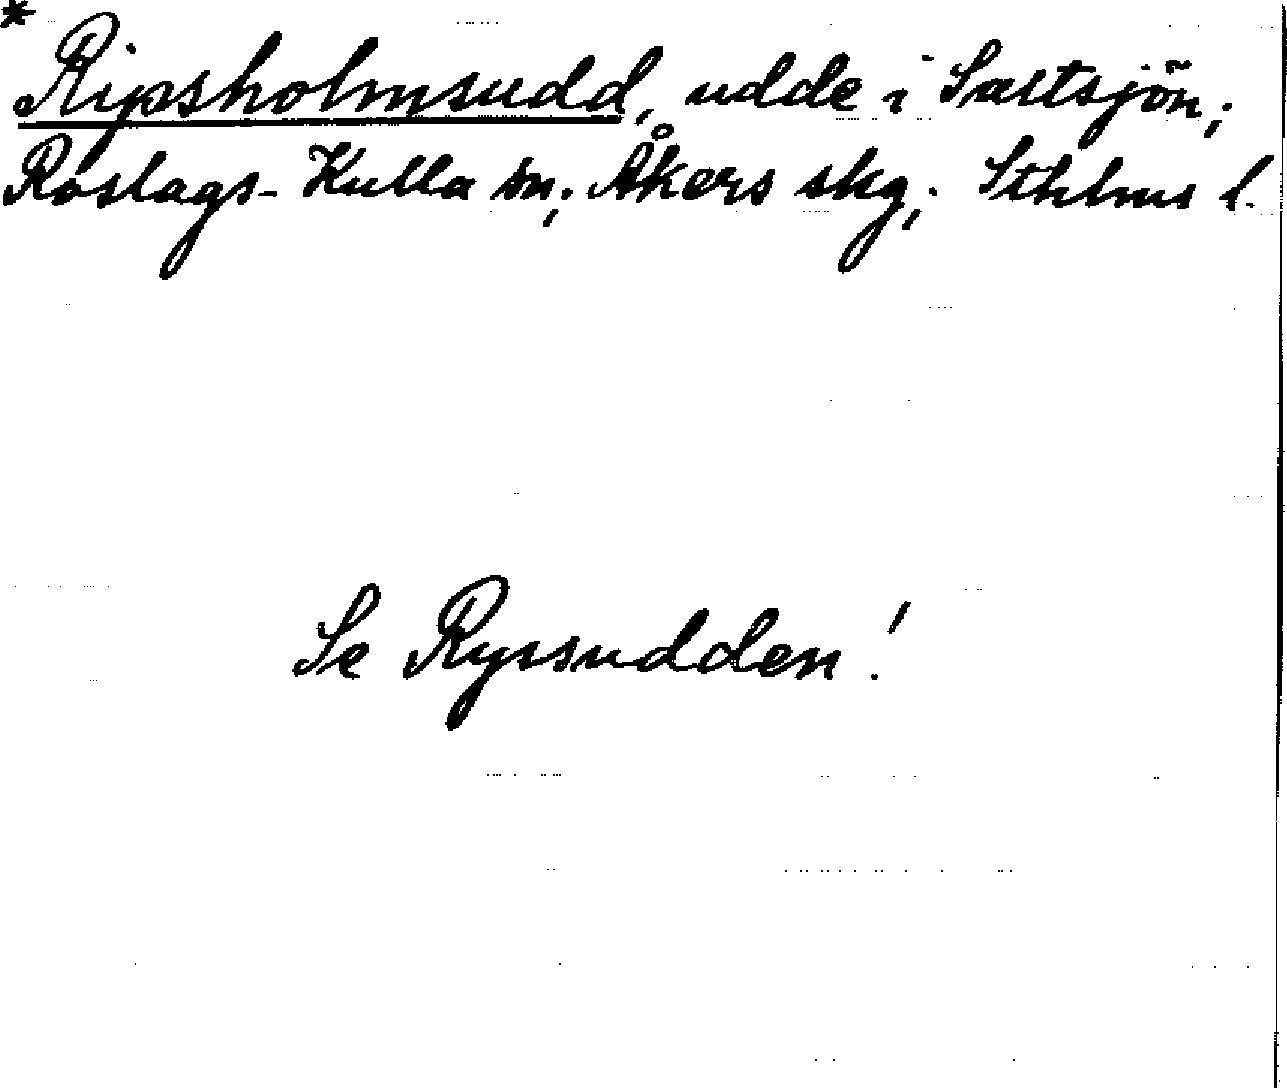 * Ripsholmsudd, udde i Saltsjön;
Roslags-Kulla sn; Åkers skg; Sthlms l.
Se Ryssudden!